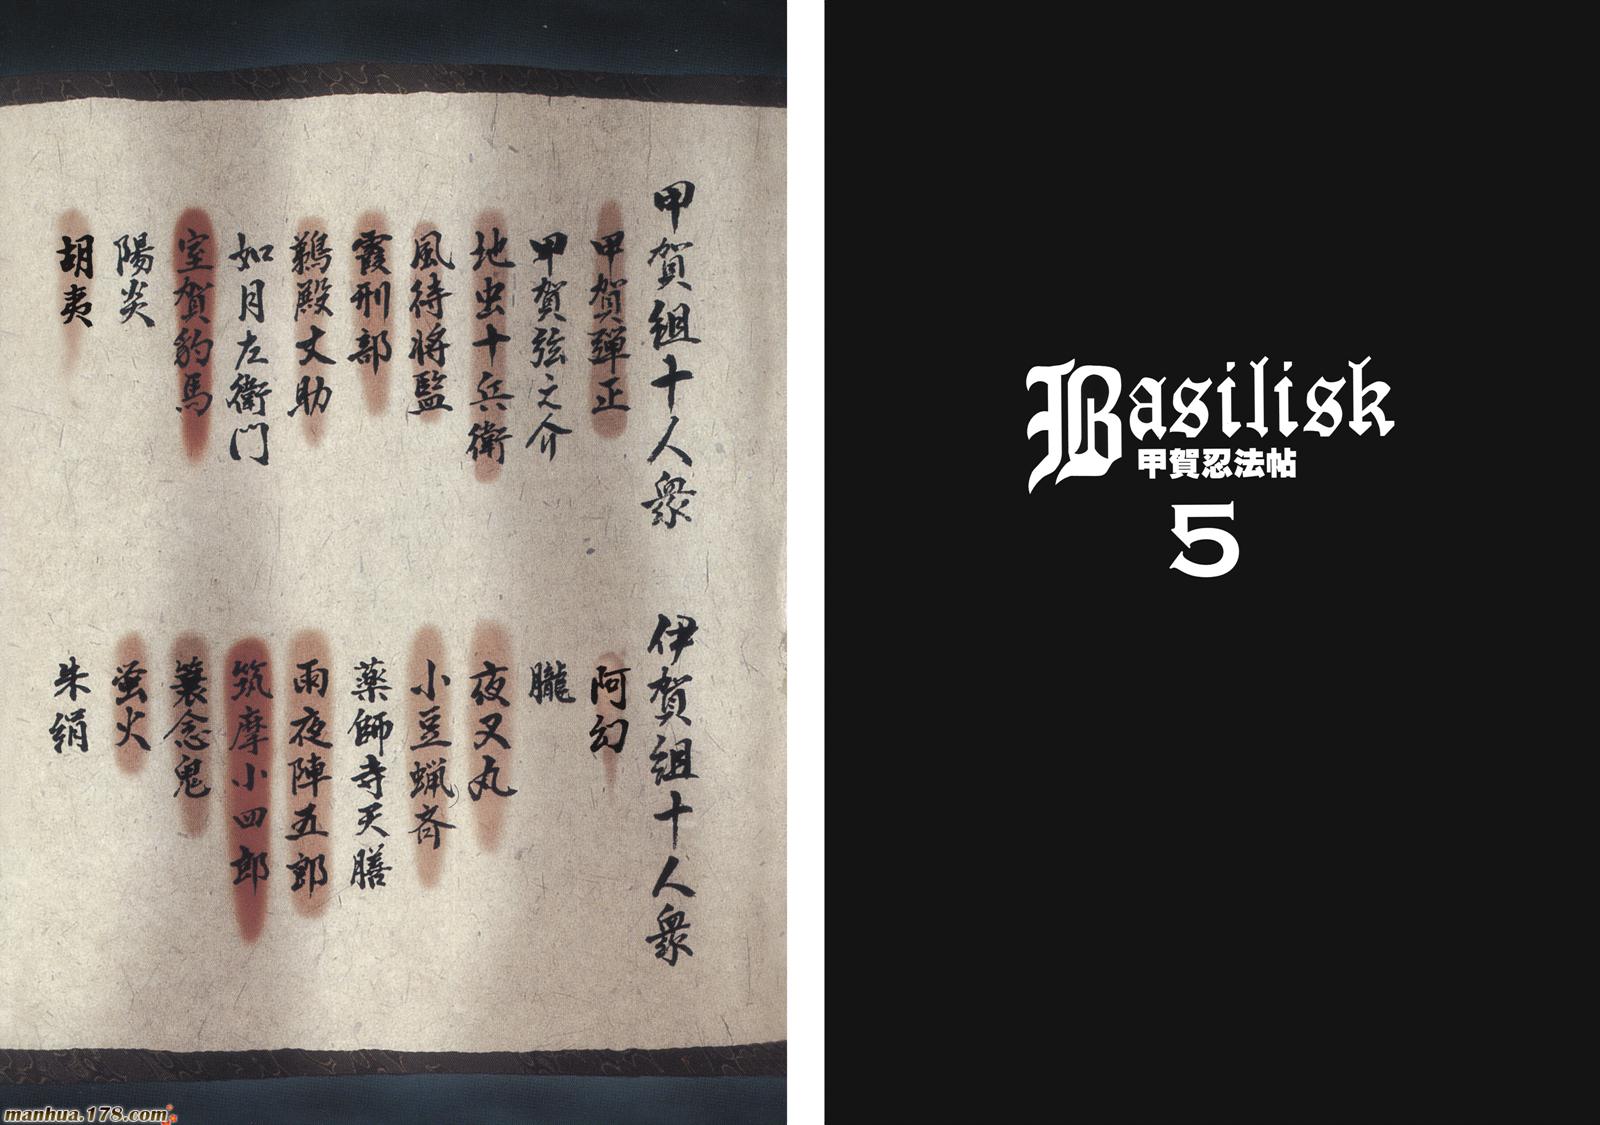 甲賀組十人衆
甲賀弾正
甲賀弦之介
地虫十兵衛
風待将監
霞刑部
鵜殿丈助
如月左衛門
室賀豹馬
陽炎
胡夷
伊賀組十人衆
阿幻
朧
夜叉丸
小豆蝋斉
薬師寺天膳
雨夜陣五郎
筑摩小四郎
簑念鬼
蛍火
朱絹
Basilisk
甲賀忍法帖
5
manhua.178.com